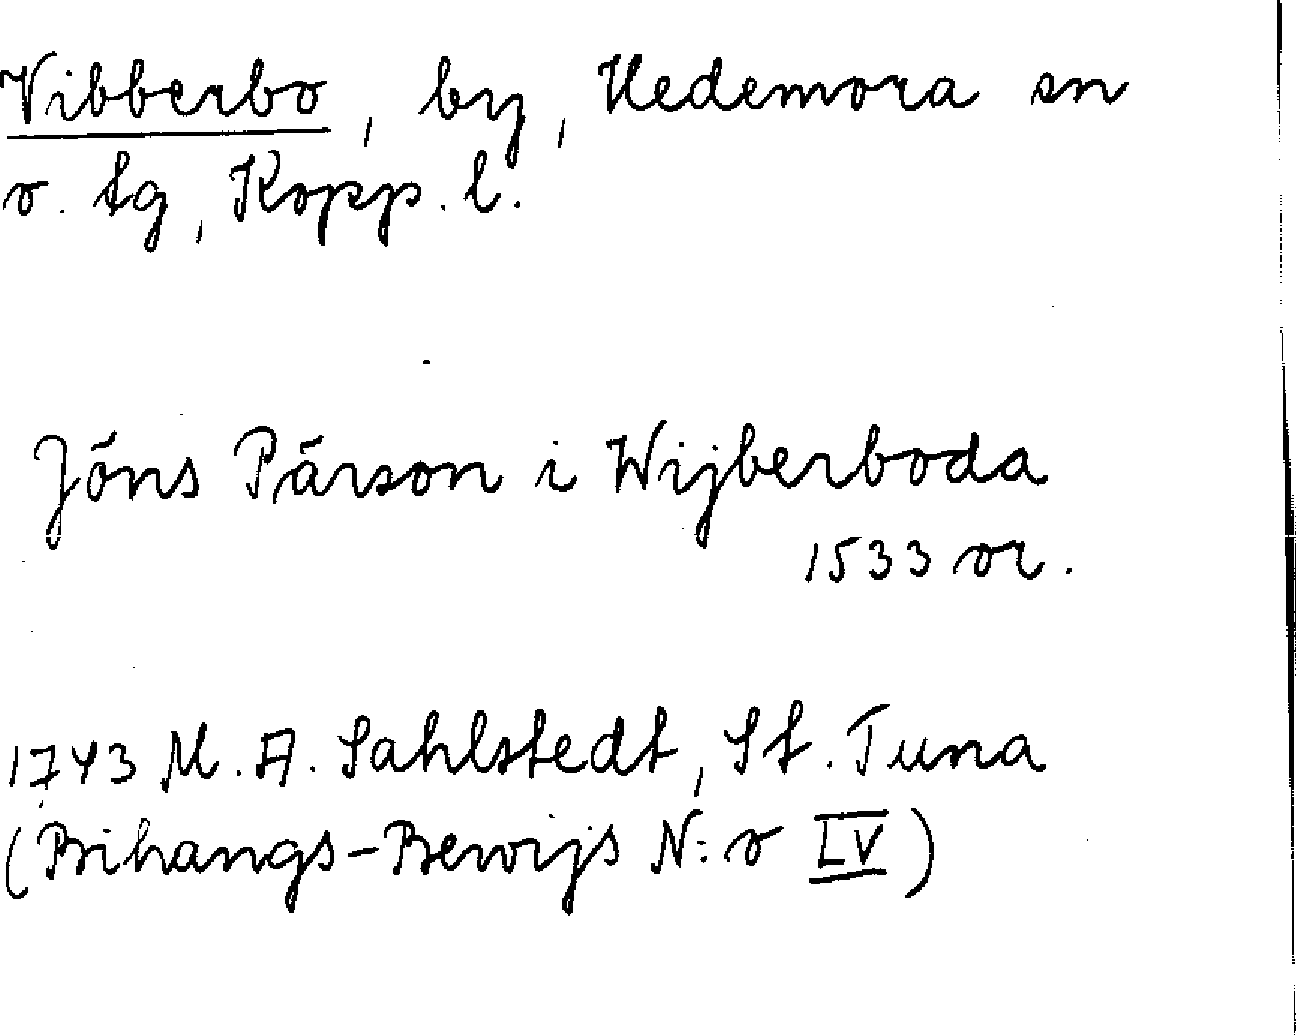 Vibberbo, by, Hedemora sn
o. tg, Kopp. l.
Jöns Pärson i Wijberboda
1533 or.
1743 M. A. Sahlstedt, St. Tuna
(Bihangs-Bewijs N:o LV)